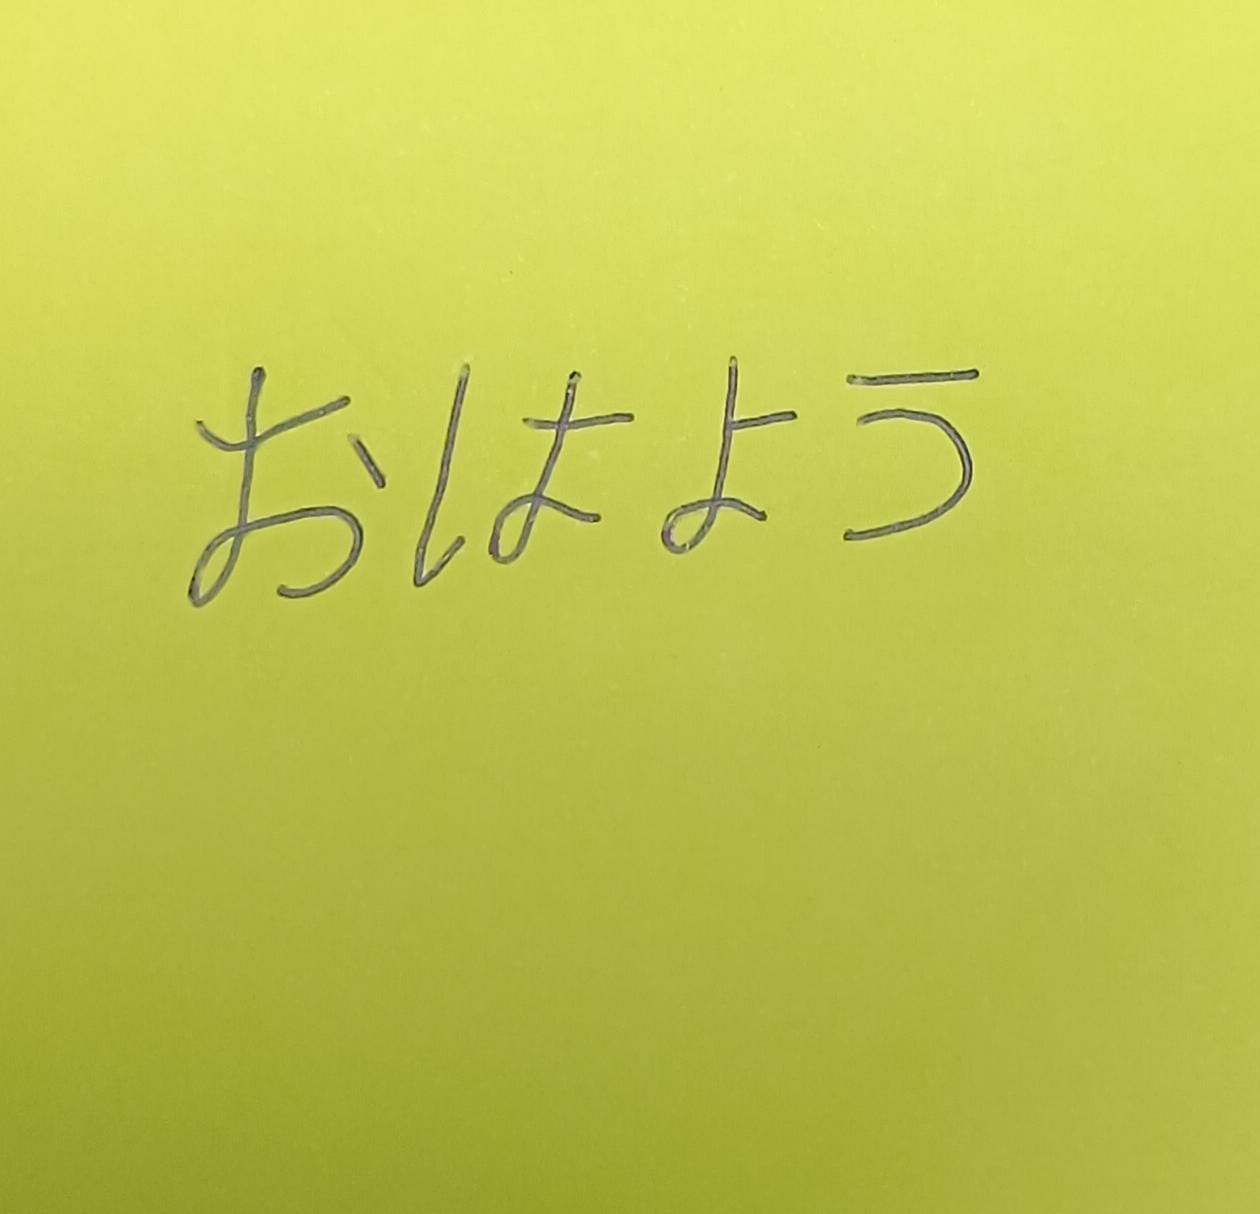 おはよう